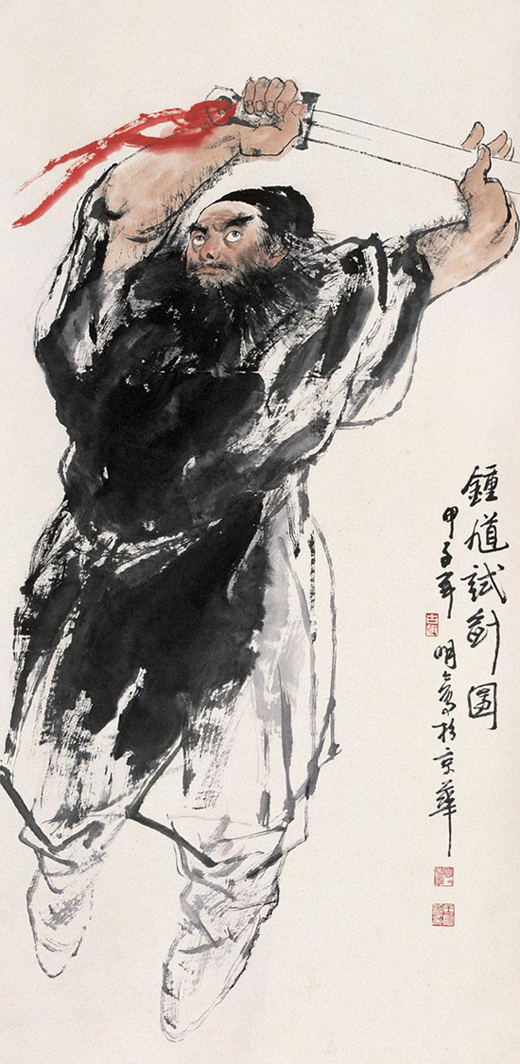 鍾馗試劍圖
甲子年 明々寫於京華